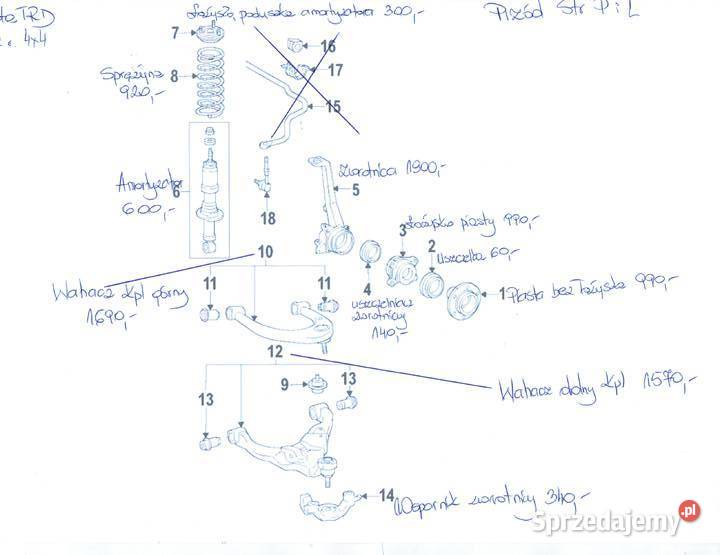 Łożysko, poduszka amortyzatora 300,-
Przód Str P i L
TRD
4x4
7
16
17
Sprężyna 8
920,-
15
Amortyzator
6
600,-
18
Zwrotnica 1900,-
5
3 Łożysko piasty 990,-
2
uszczelka 60,-
10
4
uszczelniacz
zwrotnicy
140,-
1 Piasta bez łożyska 990,-
Wahacz kpl górny
1690,-
11
11
12
9
13
13
Wahacz dolny kpl 1570,-
14 Wspornik zwrotnicy 340,-
Sprzedajemy.pl